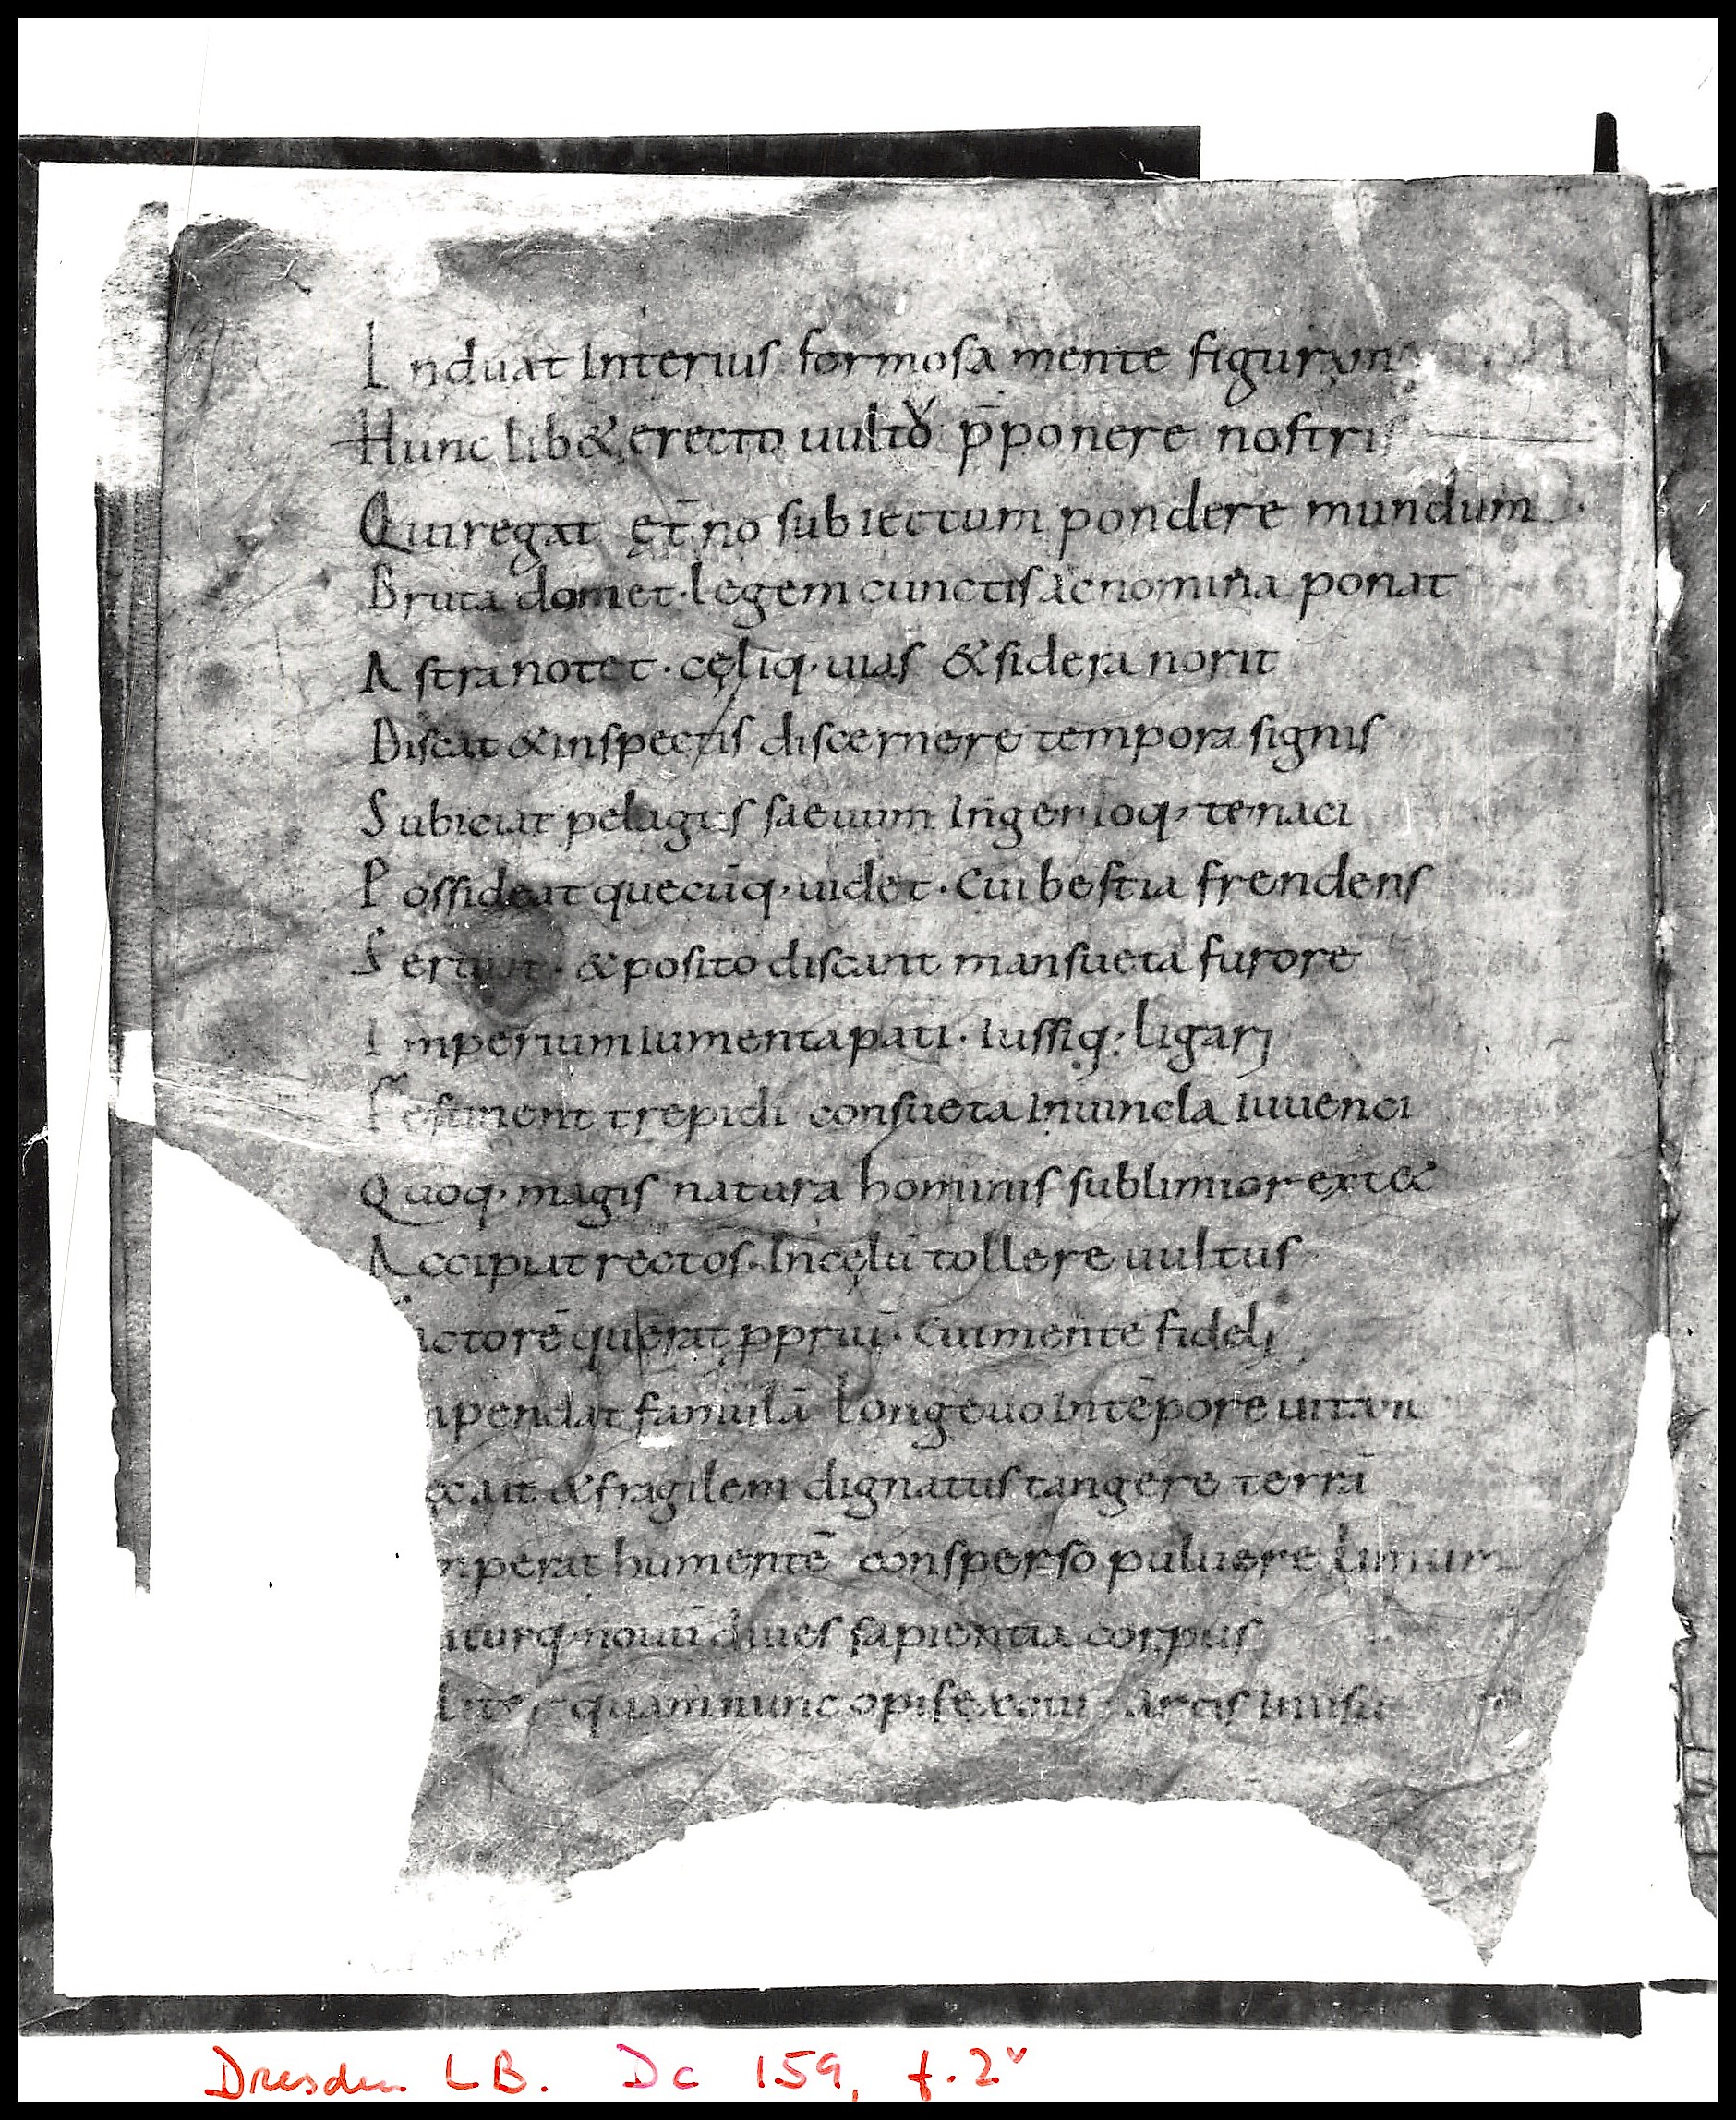 Induat Interius formosa mente figuram
Hunc lib& erecto uultu p̄ponere nostri
Qui regat ęt̄no subiectum pondere mundum
Bruta domet · legem cunctis ac nomina ponat
Astra notet · cęliq· uias & sidera norit
Discat & inspectis discernere tempora signis
Subiciat pelagus saeuum Ingenioq· tenaci
Possideat quecūq· uidet · Cui bestia frendens
Seruiat · & posito discant mansueta furore
Imperium iumenta pati · iussiq; ligari
Festinent trepidi consueta In uincla iuuenci
Quoq· magis natura hominis sublimior ext&
Accipiat rectos · In cęlū tollere uultus
actorē querat ppriū · Cui mente fideli
pendat famulā longeuo In tēpore uitam
& fragilem dignatus tangere terrā
mperat humentē consperso puluere limum
iturq· nouū diues sapientia corpus
quam nunc opifex cui artis
Dresden LB. Dc 159, f. 2v